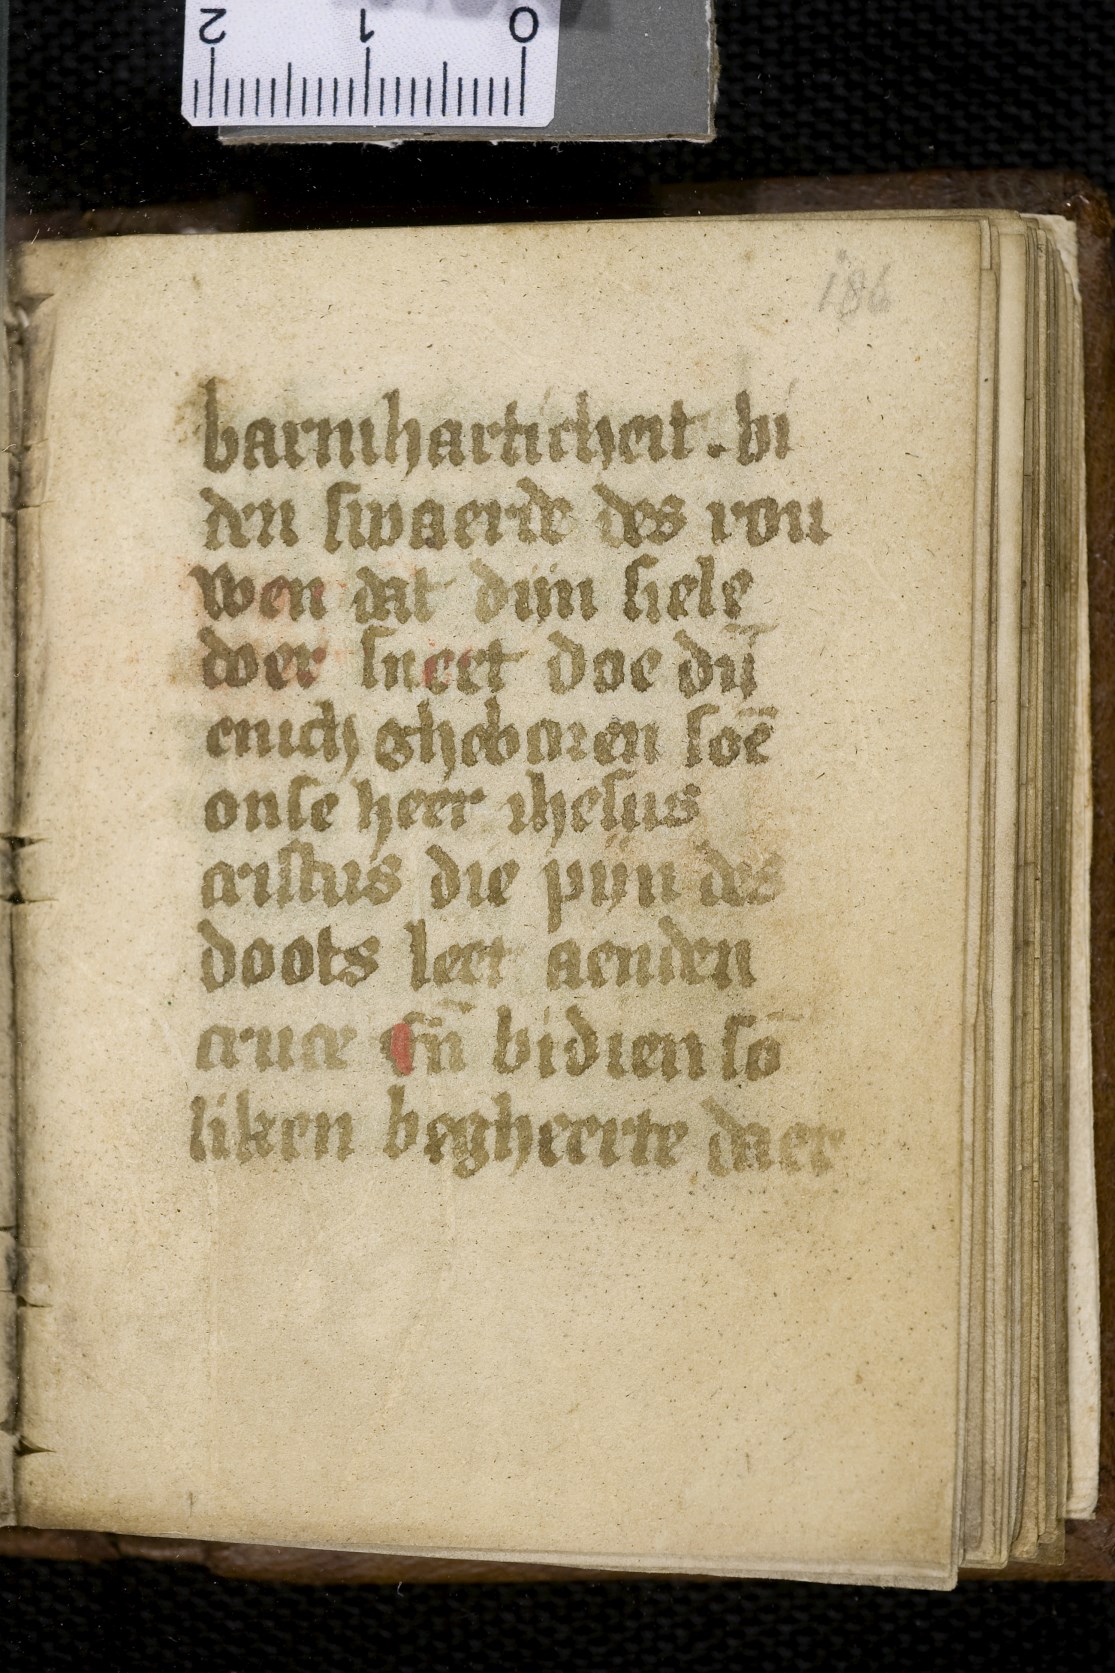 2 1 0
186
barmharticheit. bi
den swaerde des rou
wen dat dijn siele
doer sneet doe dij̄
enich gheboren soē
onse heer ihesus
cristus die pijn des
doots leet aenden
cruce En̄ bidien sō
liken begheerte daer